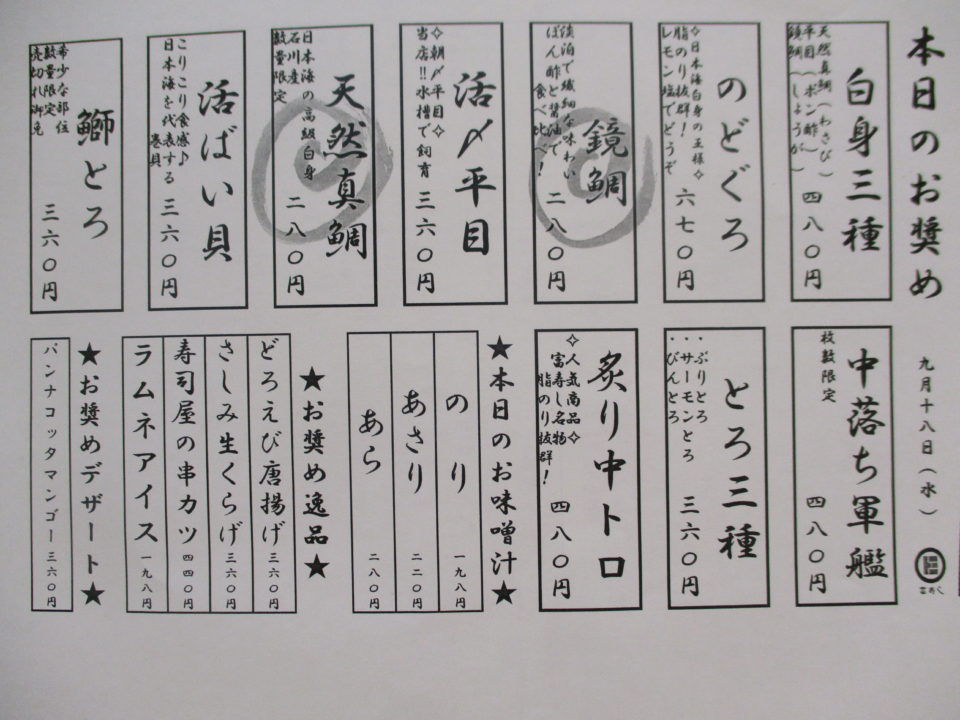 本日のお奨め
九月十八日（水）
白身三種
天然真鯛（わさび）
平目（ポン酢）
鏡鯛（しょうが）
四八〇円
のどぐろ
✧日本海白身の王様✧
脂のり抜群！
レモン塩でどうぞ
六七〇円
鏡鯛
淡泊で繊細な味わい
ぽん酢と醤油で
食べ比べ！
二八〇円
活〆平目
✧朝〆平目✧
当店！！水槽で飼育
三六〇円
天然真鯛
日本海の高級白身
石川産
数量限定
二八〇円
活ばい貝
こりこり食感♪
日本海を代表する
巻貝
三六〇円
鰤とろ
希少な部位
数量限定
売切れ御免
三六〇円
中落ち軍艦
枚数限定
四八〇円
とろ三種
・ぶりとろ
・サーモンとろ
・びんとろ
三六〇円
炙り中トロ
✧人気商品✧
富寿し名物
脂のり抜群！
四八〇円
★本日のお味噌汁★
のり 一九八円
あさり 二二〇円
あら 二八〇円
★お奨め逸品★
どろえび唐揚げ 三六〇円
さしみ生くらげ 三六〇円
寿司屋の串カツ 四四〇円
ラムネアイス 一九八円
★お奨めデザート★
パンナコッタマンゴー 三六〇円